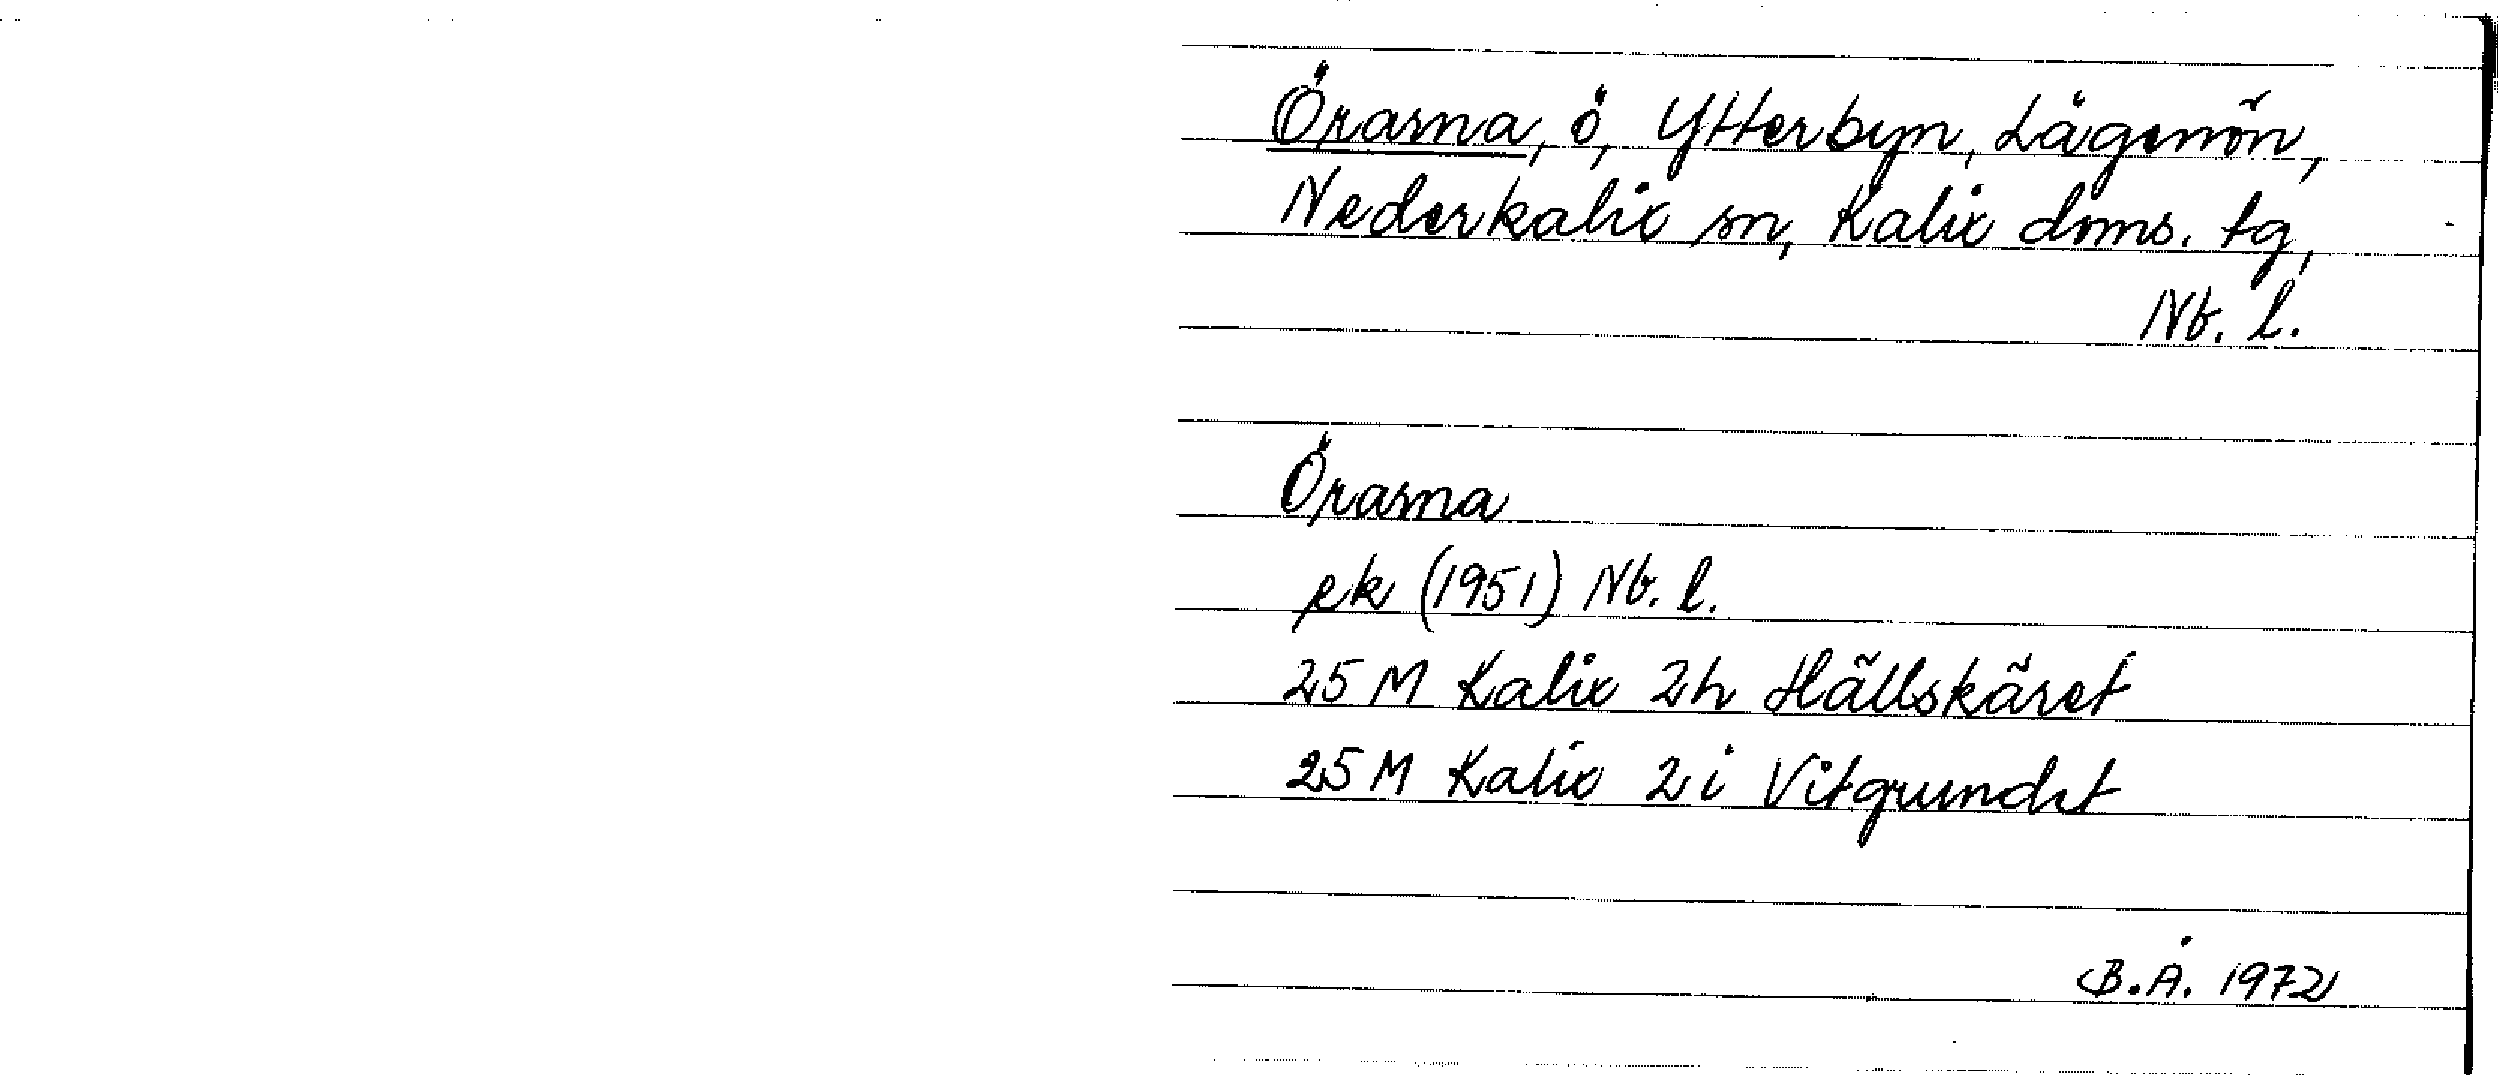 Örarna, ö, Ytterbyn, Lågenön,
Nederkalix sn, Kalix doms. tg,
Nb. l.
Örarna
ek (1951) Nb. l.
25 M Kalix 2h Hällskäret
25 M Kalix 2i Vitgrundet
B.Å. 1972